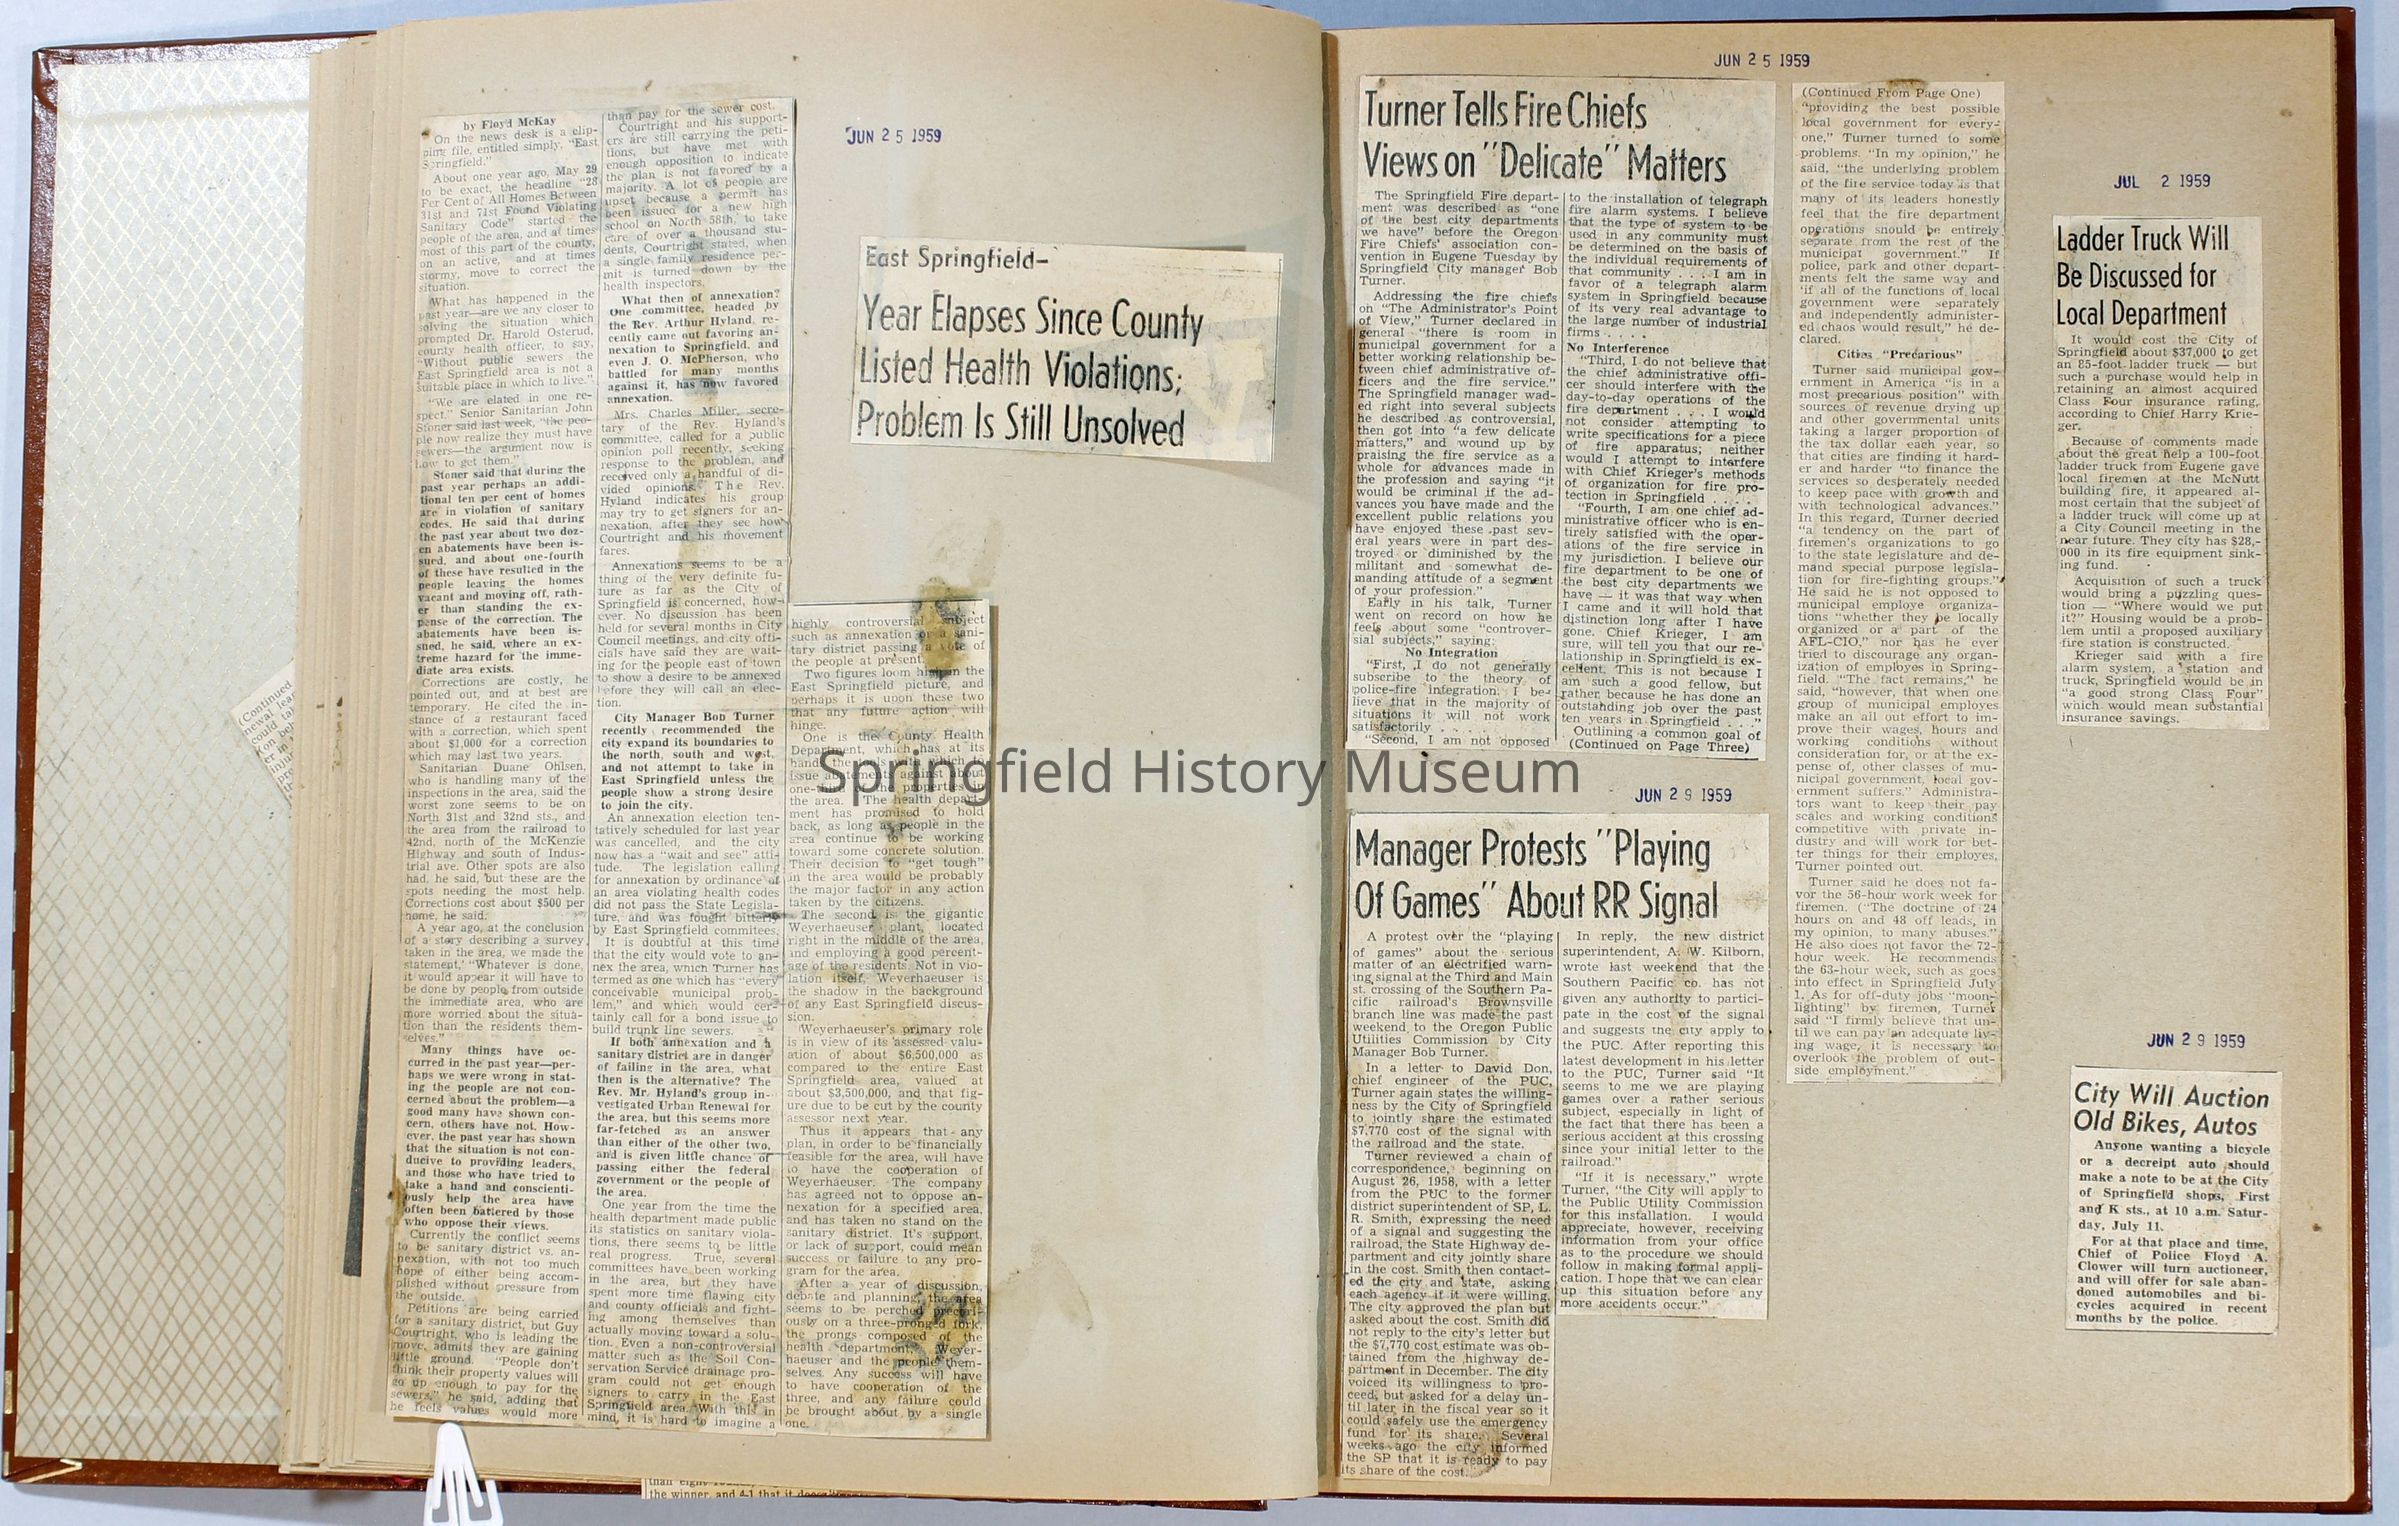 JUN 25 1959
East Springfield–
Year Elapses Since County
Listed Health Violations;
Problem Is Still Unsolved
by Floyd McKay
On the news desk is a clip-
ping file, entitled simply, "East
Springfield."
About one year ago, May 29
to be exact, the headline "28
Per Cent of All Homes Between
31st and 71st Found Violating
Sanitary Code" started the
people of the area, and at times
most of this part of the county,
on an active, and at times
stormy, move to correct the
situation.
What has happened in the
past year—are we any closer to
solving the situation which
prompted Dr. Harold Osterud,
county health officer, to say,
"Without public sewers the
East Springfield area is not a
suitable place in which to live."
"We are elated in one re-
spect." Senior Sanitarian John
Stoner said last week, "the peo-
ple now realize they must have
sewers—the argument now is
how to get them."
Stoner said that during the
past year perhaps an addi-
tional ten per cent of homes
are in violation of sanitary
codes. He said that during
the past year about two doz-
en abatements have been is-
sued, and about one-fourth
of these have resulted in the
people leaving the homes
vacant and moving off, rath-
er than standing the ex-
pense of the correction. The
abatements have been is-
sued, he said, where an ex-
treme hazard for the imme-
diate area exists.
Corrections are costly, he
pointed out, and at best are
temporary. He cited the in-
stance of a restaurant faced
with a correction, which spent
about $1,000 for a correction
which may last two years.
Sanitarian Duane Ohlsen,
who is handling many of the
inspections in the area, said the
worst zone seems to be on
North 31st and 32nd sts., and
the area from the railroad to
42nd, north of the McKenzie
Highway and south of Indus-
trial ave. Other spots are also
bad, he said, but these are the
spots needing the most help.
Corrections cost about $500 per
home, he said.
A year ago, at the conclusion
of a story describing a survey
taken in the area, we made the
statement, "Whatever is done,
it would appear it will have to
be done by people from outside
the immediate area, who are
more worried about the situa-
tion than the residents them-
selves."
Many things have oc-
curred in the past year—per-
haps we were wrong in stat-
ing the people are not con-
cerned about the problem—a
good many have shown con-
cern, others have not. How-
ever, the past year has shown
that the situation is not con-
ducive to providing leaders,
and those who have tried to
take a hand and conscienti-
ously help the area have
often been battered by those
who oppose their views.
Currently the conflict seems
to be sanitary district vs. an-
nexation, with not too much
hope of either being accom-
plished without pressure from
the outside.
Petitions are being carried
for a sanitary district, but Guy
Courtright, who is leading the
move, admits they are gaining
little ground. "People don't
think their property values will
go up enough to pay for the
sewers," he said, adding that
he feels values would more
than pay for the sewer cost.
Courtright and his support-
ers are still carrying the peti-
tions, but have met with
enough opposition to indicate
the plan is not favored by a
majority. A lot of people are
upset because a permit has
been issued for a new high
school on North 58th, to take
care of over a thousand stu-
dents, Courtright stated, when
a single family residence per-
mit is turned down by the
health inspectors.
What then of annexation?
One committee, headed by
the Rev. Arthur Hyland, re-
cently came out favoring an-
nexation to Springfield, and
even J. O. McPherson, who
battled for many months
against it, has now favored
annexation.
Mrs. Charles Miller, secre-
tary of the Rev. Hyland's
committee, called for a public
opinion poll recently, seeking
response to the problem, and
received only a handful of di-
vided opinions. The Rev.
Hyland indicates his group
may try to get signers for an-
nexation, after they see how
Courtright and his movement
fares.
Annexations seems to be a
thing of the very definite fu-
ture as far as the City of
Springfield is concerned, how-
ever. No discussion has been
held for several months in City
Council meetings, and city offi-
cials have said they are wait-
ing for the people east of town
to show a desire to be annexed
before they will call an elec-
tion.
City Manager Bob Turner
recently recommended the
city expand its boundaries to
the north, south and west,
and not attempt to take in
East Springfield unless the
people show a strong desire
to join the city.
An annexation election ten-
tatively scheduled for last year
was cancelled, and the city
now has a "wait and see" atti-
tude. The legislation calling
for annexation by ordinance of
an area violating health codes
did not pass the State Legisla-
ture, and was fought bitterly
by East Springfield commitees.
It is doubtful at this time
that the city would vote to an-
nex the area, which Turner has
termed as one which has "every
conceivable municipal prob-
lem," and which would cer-
tainly call for a bond issue to
build trunk line sewers.
If both annexation and a
sanitary district are in danger
of failing in the area, what
then is the alternative? The
Rev. Mr. Hyland's group in-
vestigated Urban Renewal for
the area, but this seems more
far-fetched as an answer
than either of the other two,
and is given little chance of
passing either the federal
government or the people of
the area.
One year from the time the
health department made public
its statistics on sanitary viola-
tions, there seems to be little
real progress. True, several
committees have been working
in the area, but they have
spent more time flaying city
and county officials and fight-
ing among themselves than
actually moving toward a solu-
tion. Even a non-controversial
matter such as the Soil Con-
servation Service drainage pro-
gram could not get enough
signers to carry in the East
Springfield area. With this in
mind, it is hard to imagine a
highly controversial subject
such as annexation or a sani-
tary district passing a vote of
the people at present.
Two figures loom high in the
East Springfield picture, and
perhaps it is upon these two
that any future action will
hinge.
One is the County Health
Department, which has at its
hands the which to
issue abatements against about
one- the properties in
the area. The health depart-
ment has promised to hold
back, as long as people in the
area continue to be working
toward some concrete solution.
Their decision to "get tough"
in the area would be probably
the major factor in any action
taken by the citizens.
The second is the gigantic
Weyerhaeuser plant, located
right in the middle of the area,
and employing a good percent-
age of the residents. Not in vio-
lation itself, Weyerhaeuser is
the shadow in the background
of any East Springfield discus-
sion.
Weyerhaeuser's primary role
is in view of its assessed valu-
ation of about $6,500,000 as
compared to the entire East
Springfield area, valued at
about $3,500,000, and that fig-
ure due to be cut by the county
assessor next year.
Thus it appears that any
plan, in order to be financially
feasible for the area, will have
to have the cooperation of
Weyerhaeuser. The company
has agreed not to oppose an-
nexation for a specified area,
and has taken no stand on the
sanitary district. It's support,
or lack of support, could mean
success or failure to any pro-
gram for the area.
After a year of discussion,
debate and planning, the area
seems to be perched precari-
ously on a three-pronged fork,
the prongs composed of the
health department, Weyer-
haeuser and the people them-
selves. Any success will have
to have cooperation of the
three, and any failure could
be brought about by a single
one.
(Continued
the winner, and 4-1 that it
JUN 25 1959
Turner Tells Fire Chiefs
Views on "Delicate" Matters
The Springfield Fire depart-
ment was described as "one
of the best city departments
we have" before the Oregon
Fire Chiefs' association con-
vention in Eugene Tuesday by
Springfield City manager Bob
Turner.
Addressing the fire chiefs
on "The Administrator's Point
of View," Turner declared in
general "there is room in
municipal government for a
better working relationship be-
tween chief administrative of-
ficers and the fire service."
The Springfield manager wad-
ed right into several subjects
he described as controversial,
then got into "a few delicate
matters," and wound up by
praising the fire service as a
whole for advances made in
the profession and saying "it
would be criminal if the ad-
vances you have made and the
excellent public relations you
have enjoyed these past sev-
eral years were in part des-
troyed or diminished by the
militant and somewhat de-
manding attitude of a segment
of your profession."
Early in his talk, Turner
went on record on how he
feels about some "controver-
sial subjects," saying:
No Integration
"First, I do not generally
subscribe to the theory of
police-fire integration. I be-
lieve that in the majority of
situations it will not work
satisfactorily . . . . .
"Second, I am not opposed
to the installation of telegraph
fire alarm systems. I believe
that the type of system to be
used in any community must
be determined on the basis of
the individual requirements of
that community . . . . I am in
favor of a telegraph alarm
system in Springfield because
of its very real advantage to
the large number of industrial
firms . . . .
No Interference
"Third, I do not believe that
the chief administrative offi-
cer should interfere with the
day-to-day operations of the
fire department . . . I would
not consider attempting to
write specifications for a piece
of fire apparatus; neither
would I attempt to interfere
with Chief Krieger's methods
of organization for fire pro-
tection in Springfield . . . .
"Fourth, I am one chief ad-
ministrative officer who is en-
tirely satisfied with the oper-
ations of the fire service in
my jurisdiction. I believe our
fire department to be one of
the best city departments we
have — it was that way when
I came and it will hold that
distinction long after I have
gone. Chief Krieger, I am
sure, will tell you that our re-
lationship in Springfield is ex-
cellent. This is not because I
am such a good fellow, but
rather because he has done an
outstanding job over the past
ten years in Springfield . . . ."
Outlining a common goal of
(Continued on Page Three)
(Continued From Page One)
"providing the best possible
local government for every-
one," Turner turned to some
problems. "In my opinion," he
said, "the underlying problem
of the fire service today is that
many of its leaders honestly
feel that the fire department
operations should be entirely
separate from the rest of the
municipal government." If
police, park and other depart-
ments felt the same way and
"if all of the functions of local
government were separately
and independently administer-
ed chaos would result," he de-
clared.
Cities "Precarious"
Turner said municipal gov-
ernment in America "is in a
most precarious position" with
sources of revenue drying up
and other governmental units
taking a larger proportion of
the tax dollar each year, so
that cities are finding it hard-
er and harder "to finance the
services so desperately needed
to keep pace with growth and
with technological advances."
In this regard, Turner decried
"a tendency on the part of
firemen's organizations to go
to the state legislature and de-
mand special purpose legisla-
tion for fire-fighting groups."
He said he is not opposed to
municipal employe organiza-
tions "whether they be locally
organized or a part of the
AFL-CIO," nor has he ever
tried to discourage any organ-
ization of employes in Spring-
field. "The fact remains," he
said, "however, that when one
group of municipal employes
make an all out effort to im-
prove their wages, hours and
working conditions without
consideration for, or at the ex-
pense of, other classes of mu-
nicipal government, local gov-
ernment suffers." Administra-
tors want to keep their pay
scales and working conditions
competitive with private in-
dustry and will work for bet-
ter things for their employes,
Turner pointed out.
Turner said he does not fa-
vor the 56-hour work week for
firemen. ("The doctrine of 24
hours on and 48 off leads, in
my opinion, to many abuses."
He also does not favor the 72-
hour week. He recommends
the 63-hour week, such as goes
into effect in Springfield July
1. As for off-duty jobs "moon-
lighting" by firemen, Turner
said "I firmly believe that un-
til we can pay an adequate liv-
ing wage, it is necessary to
overlook the problem of out-
side employment."
JUN 29 1959
Manager Protests "Playing
Of Games" About RR Signal
A protest over the "playing
of games" about the serious
matter of an electrified warn-
ing signal at the Third and Main
st. crossing of the Southern Pa-
cific railroad's Brownsville
branch line was made the past
weekend to the Oregon Public
Utilities Commission by City
Manager Bob Turner.
In a letter to David Don,
chief engineer of the PUC,
Turner again states the willing-
ness by the City of Springfield
to jointly share the estimated
$7,770 cost of the signal with
the railroad and the state.
Turner reviewed a chain of
correspondence, beginning on
August 26, 1958, with a letter
from the PUC to the former
district superintendent of SP, L.
R. Smith, expressing the need
of a signal and suggesting the
railroad, the State Highway de-
partment and city jointly share
in the cost. Smith then contact-
ed the city and state, asking
each agency if it were willing.
The city approved the plan but
asked about the cost. Smith did
not reply to the city's letter but
the $7,770 cost estimate was ob-
tained from the highway de-
partment in December. The city
voiced its willingness to pro-
ceed, but asked for a delay un-
til later in the fiscal year so it
could safely use the emergency
fund for its share. Several
weeks ago the city informed
the SP that it is ready to pay
its share of the cost.
In reply, the new district
superintendent, A. W. Kilborn,
wrote last weekend that the
Southern Pacific co. has not
given any authority to partici-
pate in the cost of the signal
and suggests the city apply to
the PUC. After reporting this
latest development in his letter
to the PUC, Turner said "It
seems to me we are playing
games over a rather serious
subject, especially in light of
the fact that there has been a
serious accident at this crossing
since your initial letter to the
railroad."
"If it is necessary," wrote
Turner, "the City will apply to
the Public Utility Commission
for this installation. I would
appreciate, however, receiving
information from your office
as to the procedure we should
follow in making formal appli-
cation. I hope that we can clear
up this situation before any
more accidents occur."
JUL 2 1959
Ladder Truck Will
Be Discussed for
Local Department
It would cost the City of
Springfield about $37,000 to get
an 85-foot ladder truck — but
such a purchase would help in
retaining an almost acquired
Class Four insurance rating,
according to Chief Harry Krie-
ger.
Because of comments made
about the great help a 100-foot
ladder truck from Eugene gave
local firemen at the McNutt
building fire, it appeared al-
most certain that the subject of
a ladder truck will come up at
a City Council meeting in the
near future. They city has $28,-
000 in its fire equipment sink-
ing fund.
Acquisition of such a truck
would bring a puzzling ques-
tion — "Where would we put
it?" Housing would be a prob-
lem until a proposed auxiliary
fire station is constructed.
Krieger said with a fire
alarm system, a station and
truck, Springfield would be in
"a good strong Class Four"
which would mean substantial
insurance savings.
JUN 29 1959
City Will Auction
Old Bikes, Autos
Anyone wanting a bicycle
or a decreipt auto should
make a note to be at the City
of Springfield shops, First
and K sts., at 10 a.m. Satur-
day, July 11.
For at that place and time,
Chief of Police Floyd A.
Clower will turn auctioneer,
and will offer for sale aban-
doned automobiles and bi-
cycles acquired in recent
months by the police.
Springfield History Museum